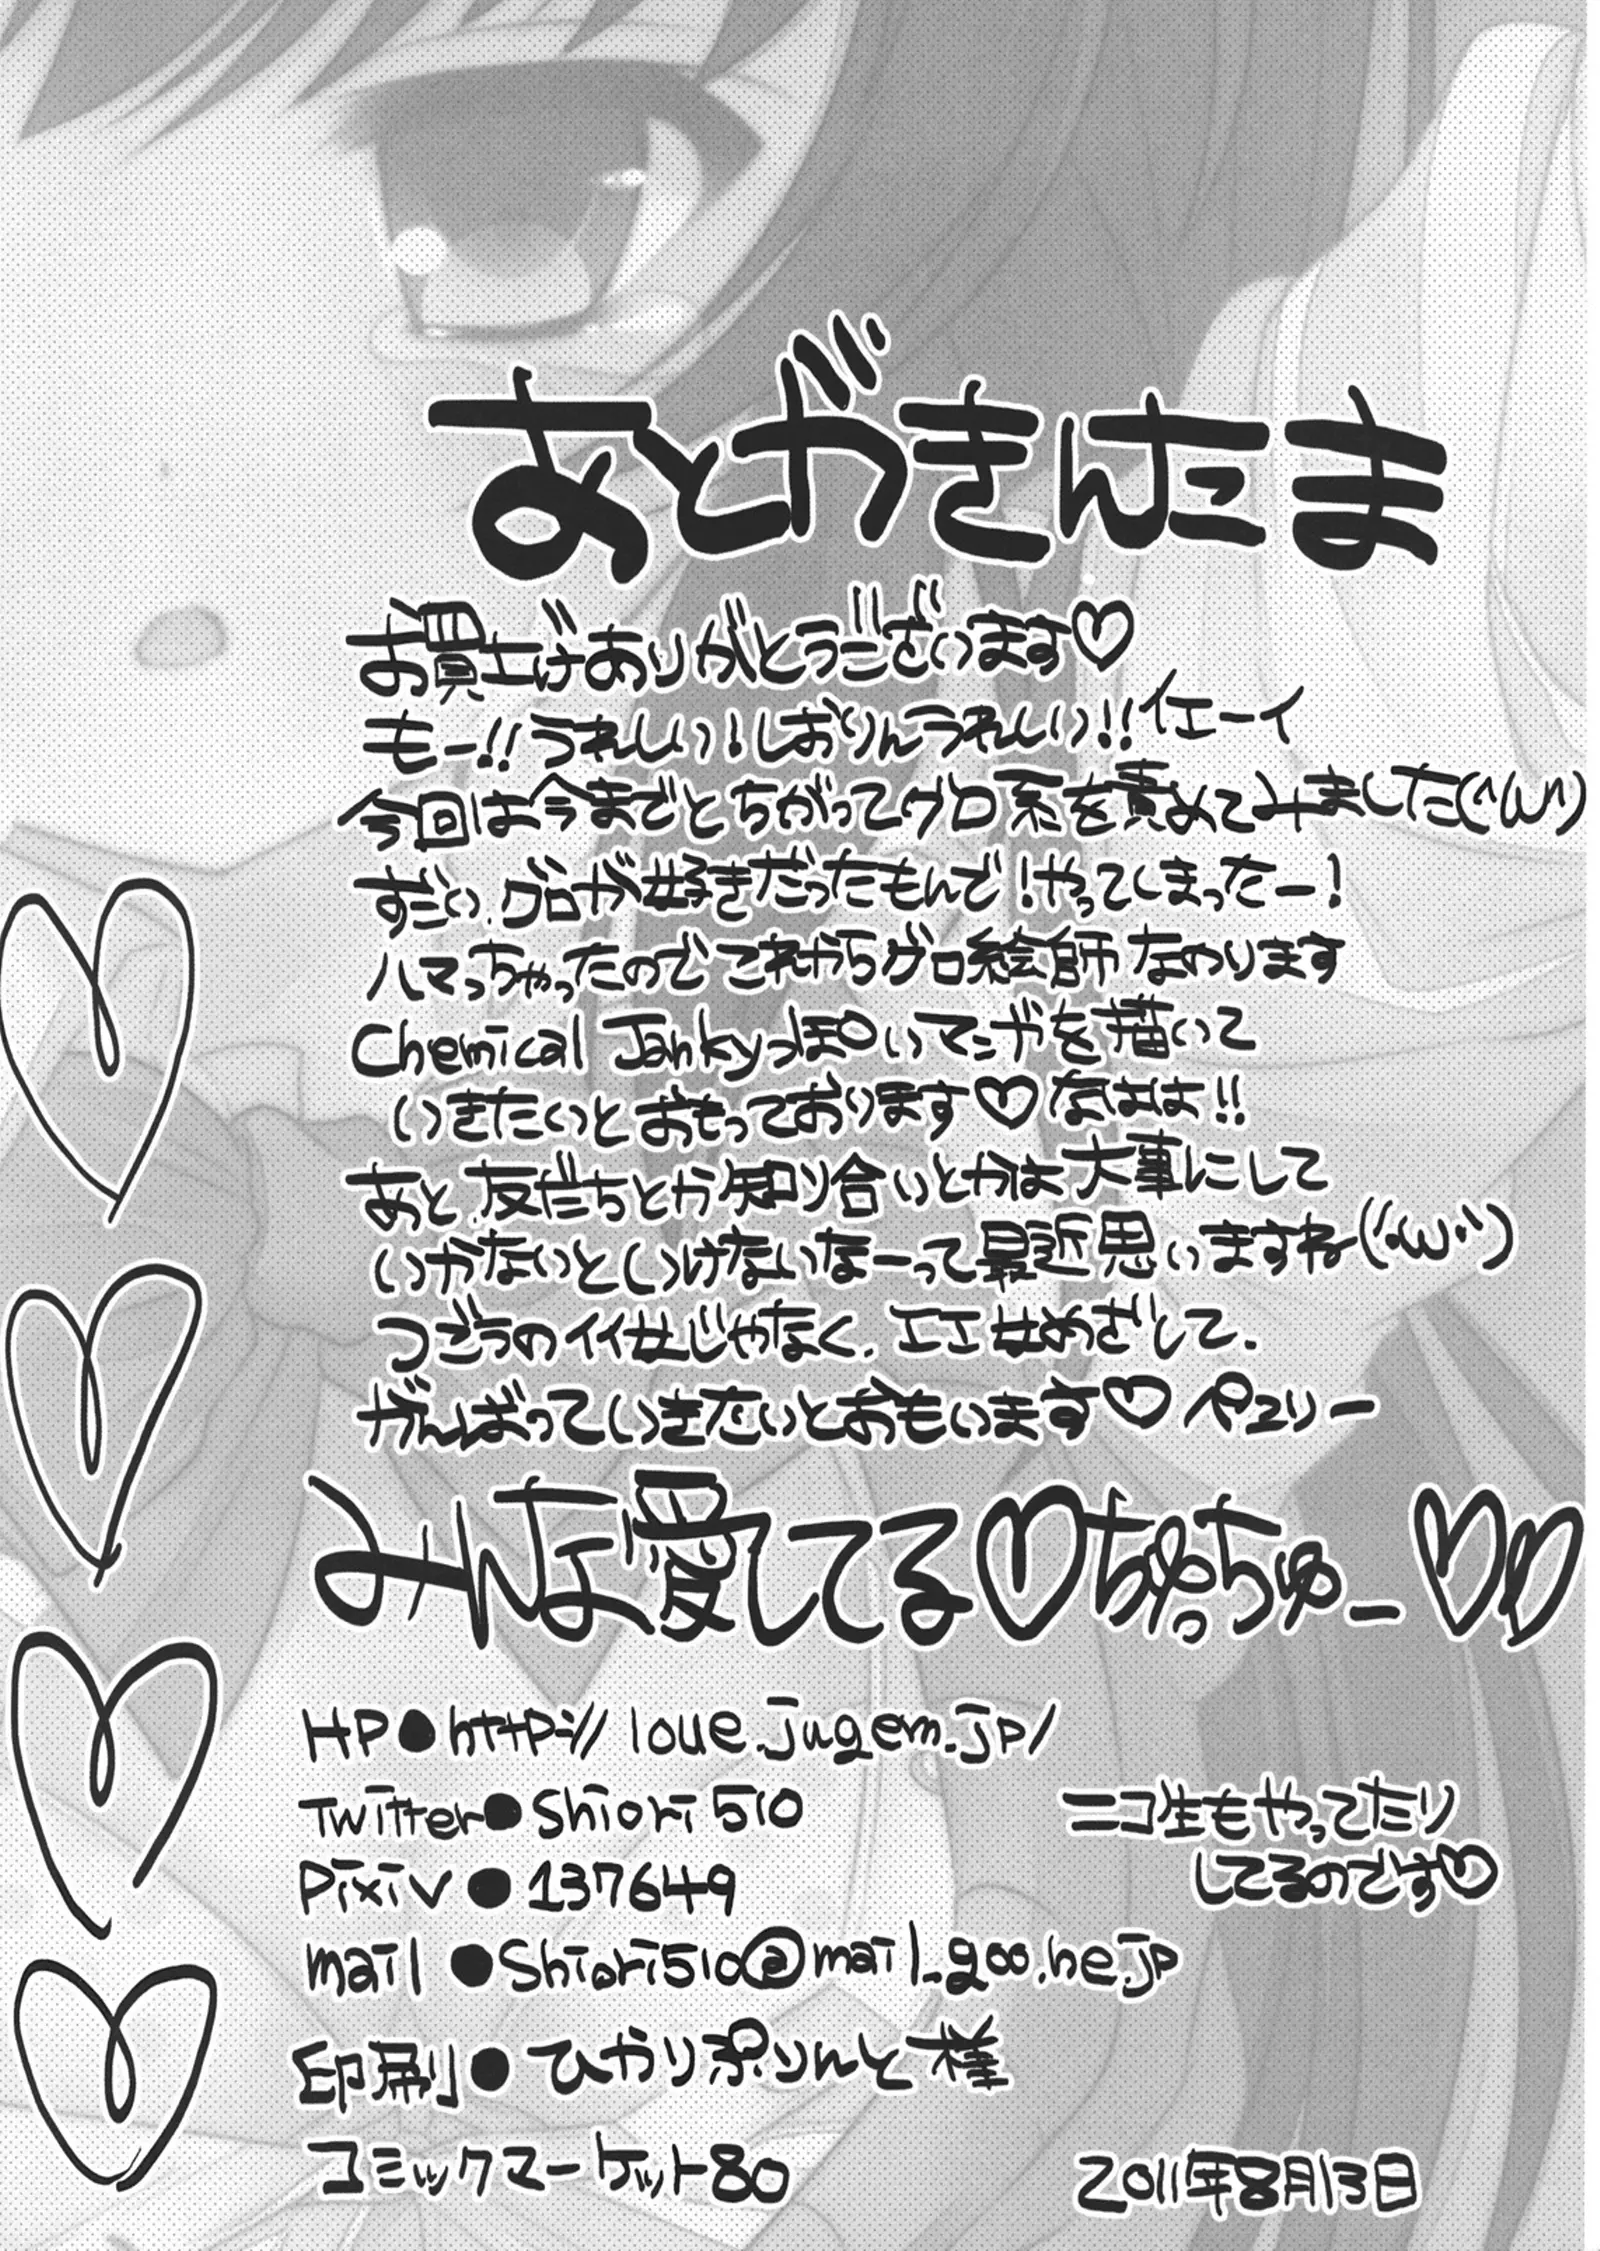 あとがきんたま
お買上げありがとうございます♡
もー!!うれしい!しおりんうれしい!!イエーイ
今回は今までとちがってグロ系を責めてみました(^ω^)
ずい グロが好きだったもんで!やってしまったー!
ハマっちゃったのでこれからグロ絵師なのります
Chemical Jankyっぽいマンガを描いて
いきたいとおもっております♡なはは!!
あと、友だちとか知り合いとかは大事にして
いかないといけないなーって最近思いますね(´・ω・`)
つごうのイイ女じゃなく、エエ女めざして、
がんばっていきたいとおもいます♡ペュリー
みんな愛してる♡ちゅっちゅー♡♡
HP●http://loue.jugem.jp/
Twitter●Shiori510
ニコ生もやってたり
してるのです♡
Pixiv●137649
mail●Shiori510@mail.goo.ne.jp
印刷●ひかりぷりんと様
コミックマーケット80
2011年8月13日